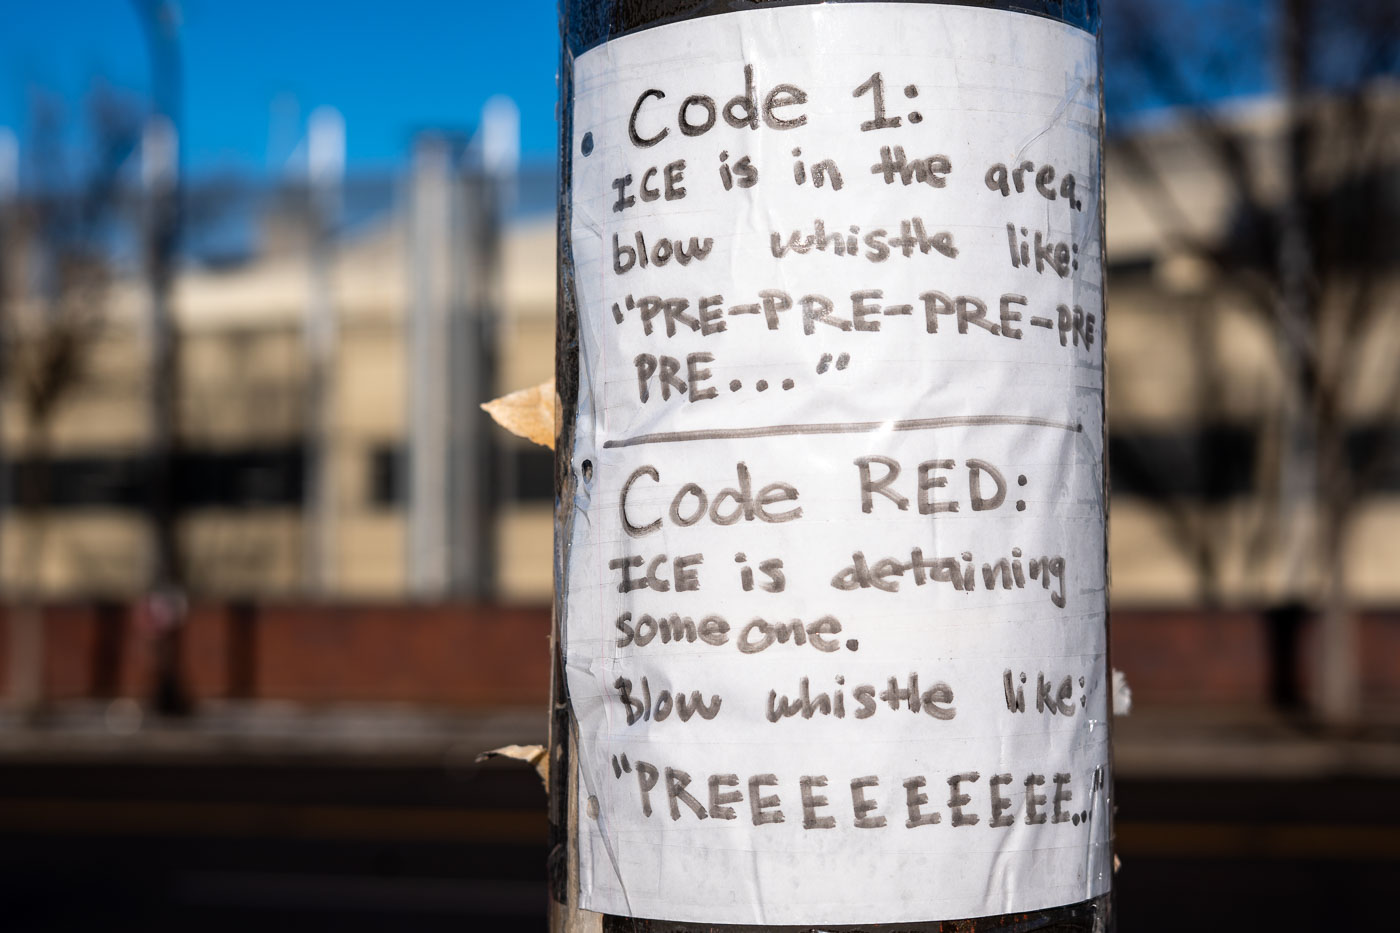 Code 1:
ICE is in the area.
blow whistle like:
"PRE-PRE-PRE-PRE
PRE..."
Code RED:
ICE is detaining
someone.
Blow whistle like:
"PREEEEEEEEE..."